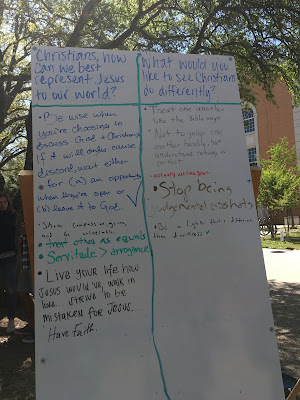 Christians, how
can we best
represent Jesus
to our world?
• Be wise when
you're choosing to
discuss God & Christianity
if it will only cause
discord, wait either
for (a) an opportunity
when they're open or
(b) leave it to God.
• Show compassion,
and be
• treat others as equals
• Servitude > arrogance
• Live your life how
Jesus would've, walk in
love... strive to be
mistaken for Jesus.
Have faith.
What would you
like to see Christians
do differently?
• Treat one another
like the Bible says
• Not to judge one
another harshly, but
understand nobody is
perfect.
• actually act like Jesus
• Stop being
judgemental assholes
• Be a light that's different
than darkness